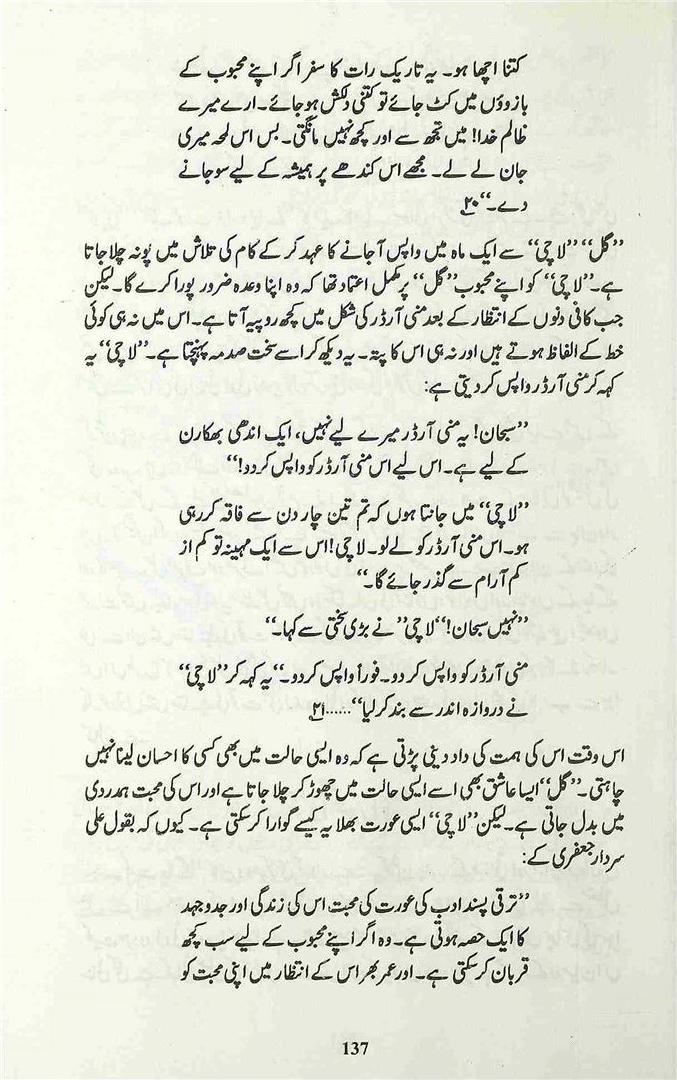 کتنا اچھا ہو۔ یہ تاریک رات کا سفر اگر اپنے محبوب کے
بازوؤں میں کٹ جائے تو کتنی دلکش ہو جائے۔ ارے میرے
ظالم خدا! میں تجھ سے اور کچھ نہیں مانگتی۔ بس اس لمحہ میری
جان لے لے۔ مجھے اس کندھے پر ہمیشہ کے لیے سو جانے
دے۔‘‘ ۲۰
’’گل‘‘ ’’لاچی‘‘ سے ایک ماہ میں واپس آ جانے کا عہد کر کے کام کی تلاش میں پونہ چلا جاتا
ہے۔ ’’لاچی‘‘ کو اپنے محبوب ’’گل‘‘ پر مکمل اعتماد تھا کہ وہ اپنا وعدہ ضرور پورا کرے گا۔ لیکن
جب کافی دنوں کے انتظار کے بعد منی آرڈر کی شکل میں کچھ روپیہ آتا ہے۔ اس میں نہ ہی کوئی
خط کے الفاظ ہوتے ہیں اور نہ ہی اس کا پتہ۔ یہ دیکھ کر اسے سخت صدمہ پہنچتا ہے۔ ’’لاچی‘‘ یہ
کہہ کر منی آرڈر واپس کر دیتی ہے:
’’سبحان! یہ منی آرڈر میرے لیے نہیں، ایک اندھی بھکارن
کے لیے ہے۔ اس لیے اس منی آرڈر کو واپس کر دو!‘‘
’’لاچی‘‘ میں جانتا ہوں کہ تم تین چار دن سے فاقہ کر رہی
ہو۔ اس منی آرڈر کو لے لو۔ لاچی! اس سے ایک مہینہ تو کم از
کم آرام سے گذر جائے گا۔‘‘
’’نہیں سبحان!‘‘ ’’لاچی‘‘ نے بڑی سختی سے کہا۔‘‘
منی آرڈر کو واپس کر دو۔ فوراً واپس کر دو۔‘‘ یہ کہہ کر ’’لاچی‘‘
نے دروازہ اندر سے بند کر لیا‘‘ ...... ۲۱
اس وقت اس کی ہمت کی داد دینی پڑتی ہے کہ وہ ایسی حالت میں بھی کسی کا احسان لینا نہیں
چاہتی۔ ’’گل‘‘ ایسا عاشق بھی اسے ایسی حالت میں چھوڑ کر چلا جاتا ہے اور اس کی محبت ہمدردی
میں بدل جاتی ہے۔ لیکن ’’لاچی‘‘ ایسی عورت بھلا یہ کیسے گوارا کر سکتی ہے۔ کیوں کہ بقول علی
سردار جعفری کے:
’’ترقی پسند ادب کی عورت کی محبت اس کی زندگی اور جدوجہد
کا ایک حصہ ہوتی ہے۔ وہ اگر اپنے محبوب کے لیے سب کچھ
قربان کر سکتی ہے۔ اور عمر بھر اس کے انتظار میں اپنی محبت کو
137